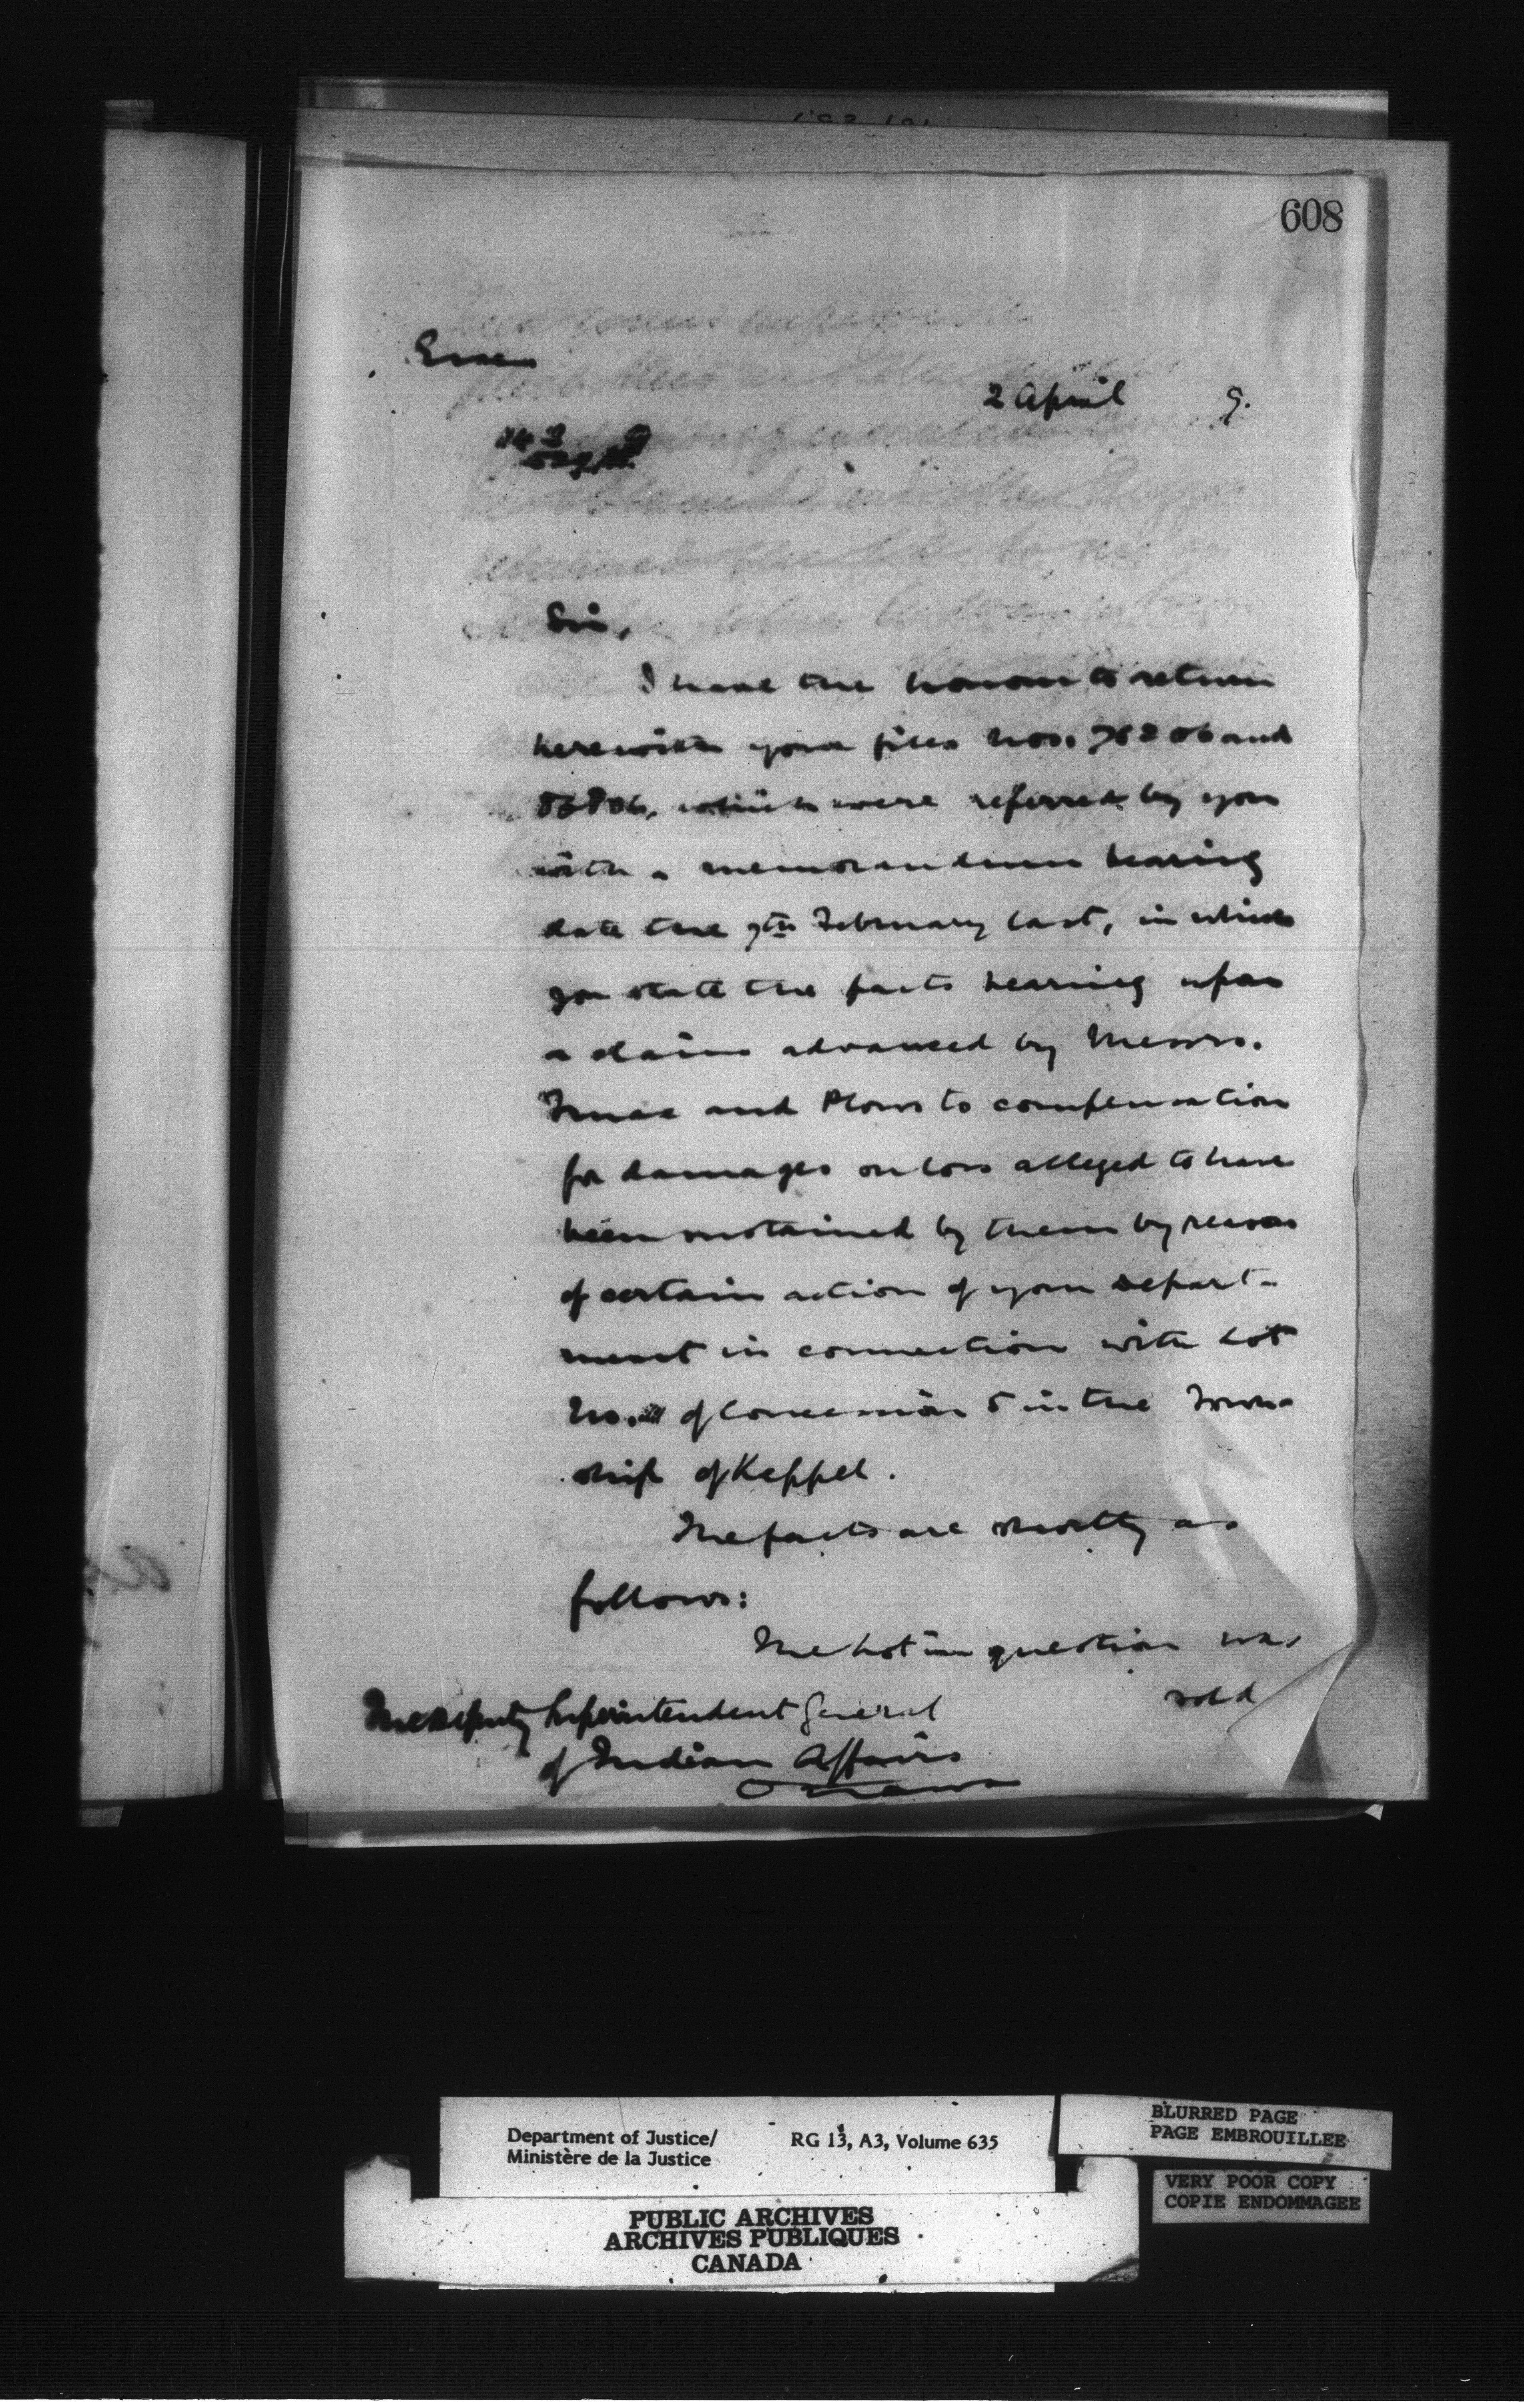 608
2 April 9.
Sir,
I have the honour to return
herewith your files Nos. 76206 and
which were referred by you
with a memorandum bearing
date the 7th February last, in which
you state the facts bearing upon
a claim advanced by Messrs.
and Plows to compensation
for damages or loss alleged to have
been sustained by them by reason
of certain action of your Depart-
ment in connection with Lot
No. of Concession 5 in the Town-
ship of Keppel.
The facts are shortly as
follows:
The Lot in question was
sold
The Deputy Superintendent General
of Indian Affairs
Ottawa
Department of Justice/
Ministère de la Justice
RG 13, A3, Volume 635
BLURRED PAGE
PAGE EMBROUILLEE
VERY POOR COPY
COPIE ENDOMMAGEE
PUBLIC ARCHIVES
ARCHIVES PUBLIQUES
CANADA